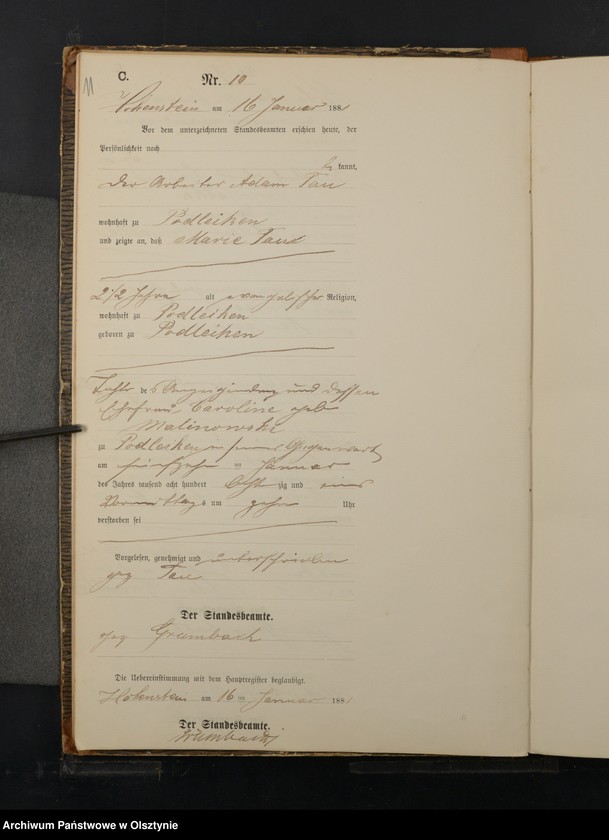 11
C.
Nr. 10
Hohenstein am 16 Januar 1881
Vor dem unterzeichneten Standesbeamten erschien heute, der
Persönlichkeit nach
be kannt,
Der Arbeiter Adam Tau
wohnhaft zu Podleiken
und zeigte an, daß Marie Tau
2 1/2 Jahre alt evangelischer Religion,
wohnhaft zu Podleiken
geboren zu Podleiken
Tochter des Anzeigenden und dessen
Ehefrau Caroline geb
Malinowski
zu Podleiken in seiner Gegenwart
am fünfzehn ten Januar
des Jahres tausend acht hundert acht zig und eins
Vormittags um zehn Uhr
verstorben sei
Vorgelesen, genehmigt und unterschrieben
gez Tau
Der Standesbeamte.
gez Grumbach
Die Uebereinstimmung mit dem Hauptregister beglaubigt.
Hohenstein am 16 ten Januar 1881
Der Standesbeamte.
Grumbach
Archiwum Państwowe w Olsztynie